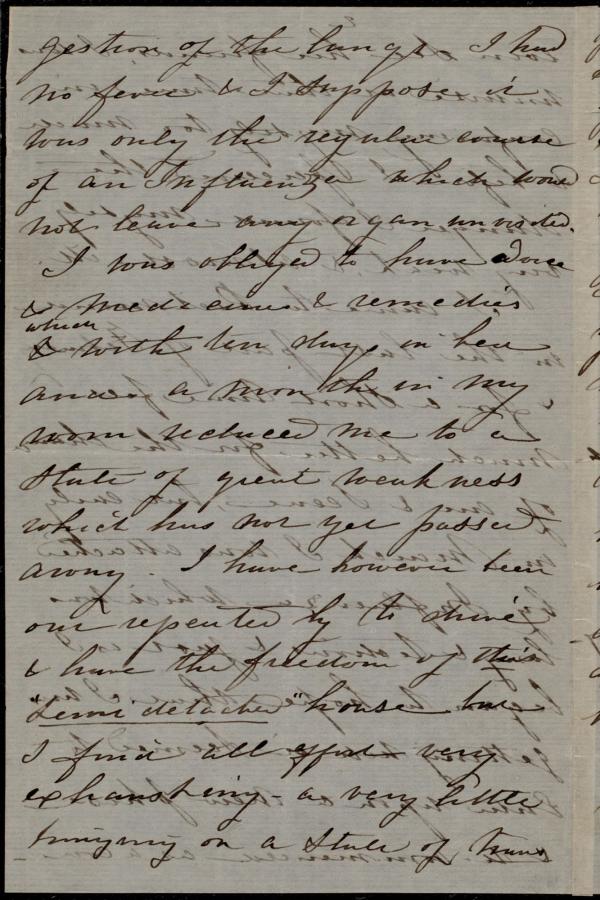 gestion of the lungs. I had
no fever & I suppose it
was only the regular course
of an Influenza which would
not leave any organ unvisited.
I was obliged to have advice
& medicines & remedies
which
& with ten days in bed
and a month in my
room reduced me to a
state of great weakness
which has not yet passed
away. I have however been
out repeatedly to drive
& have the freedom of this
"semi detached" house but
I find all effort very
exhausting - a very little
bringing on a state of